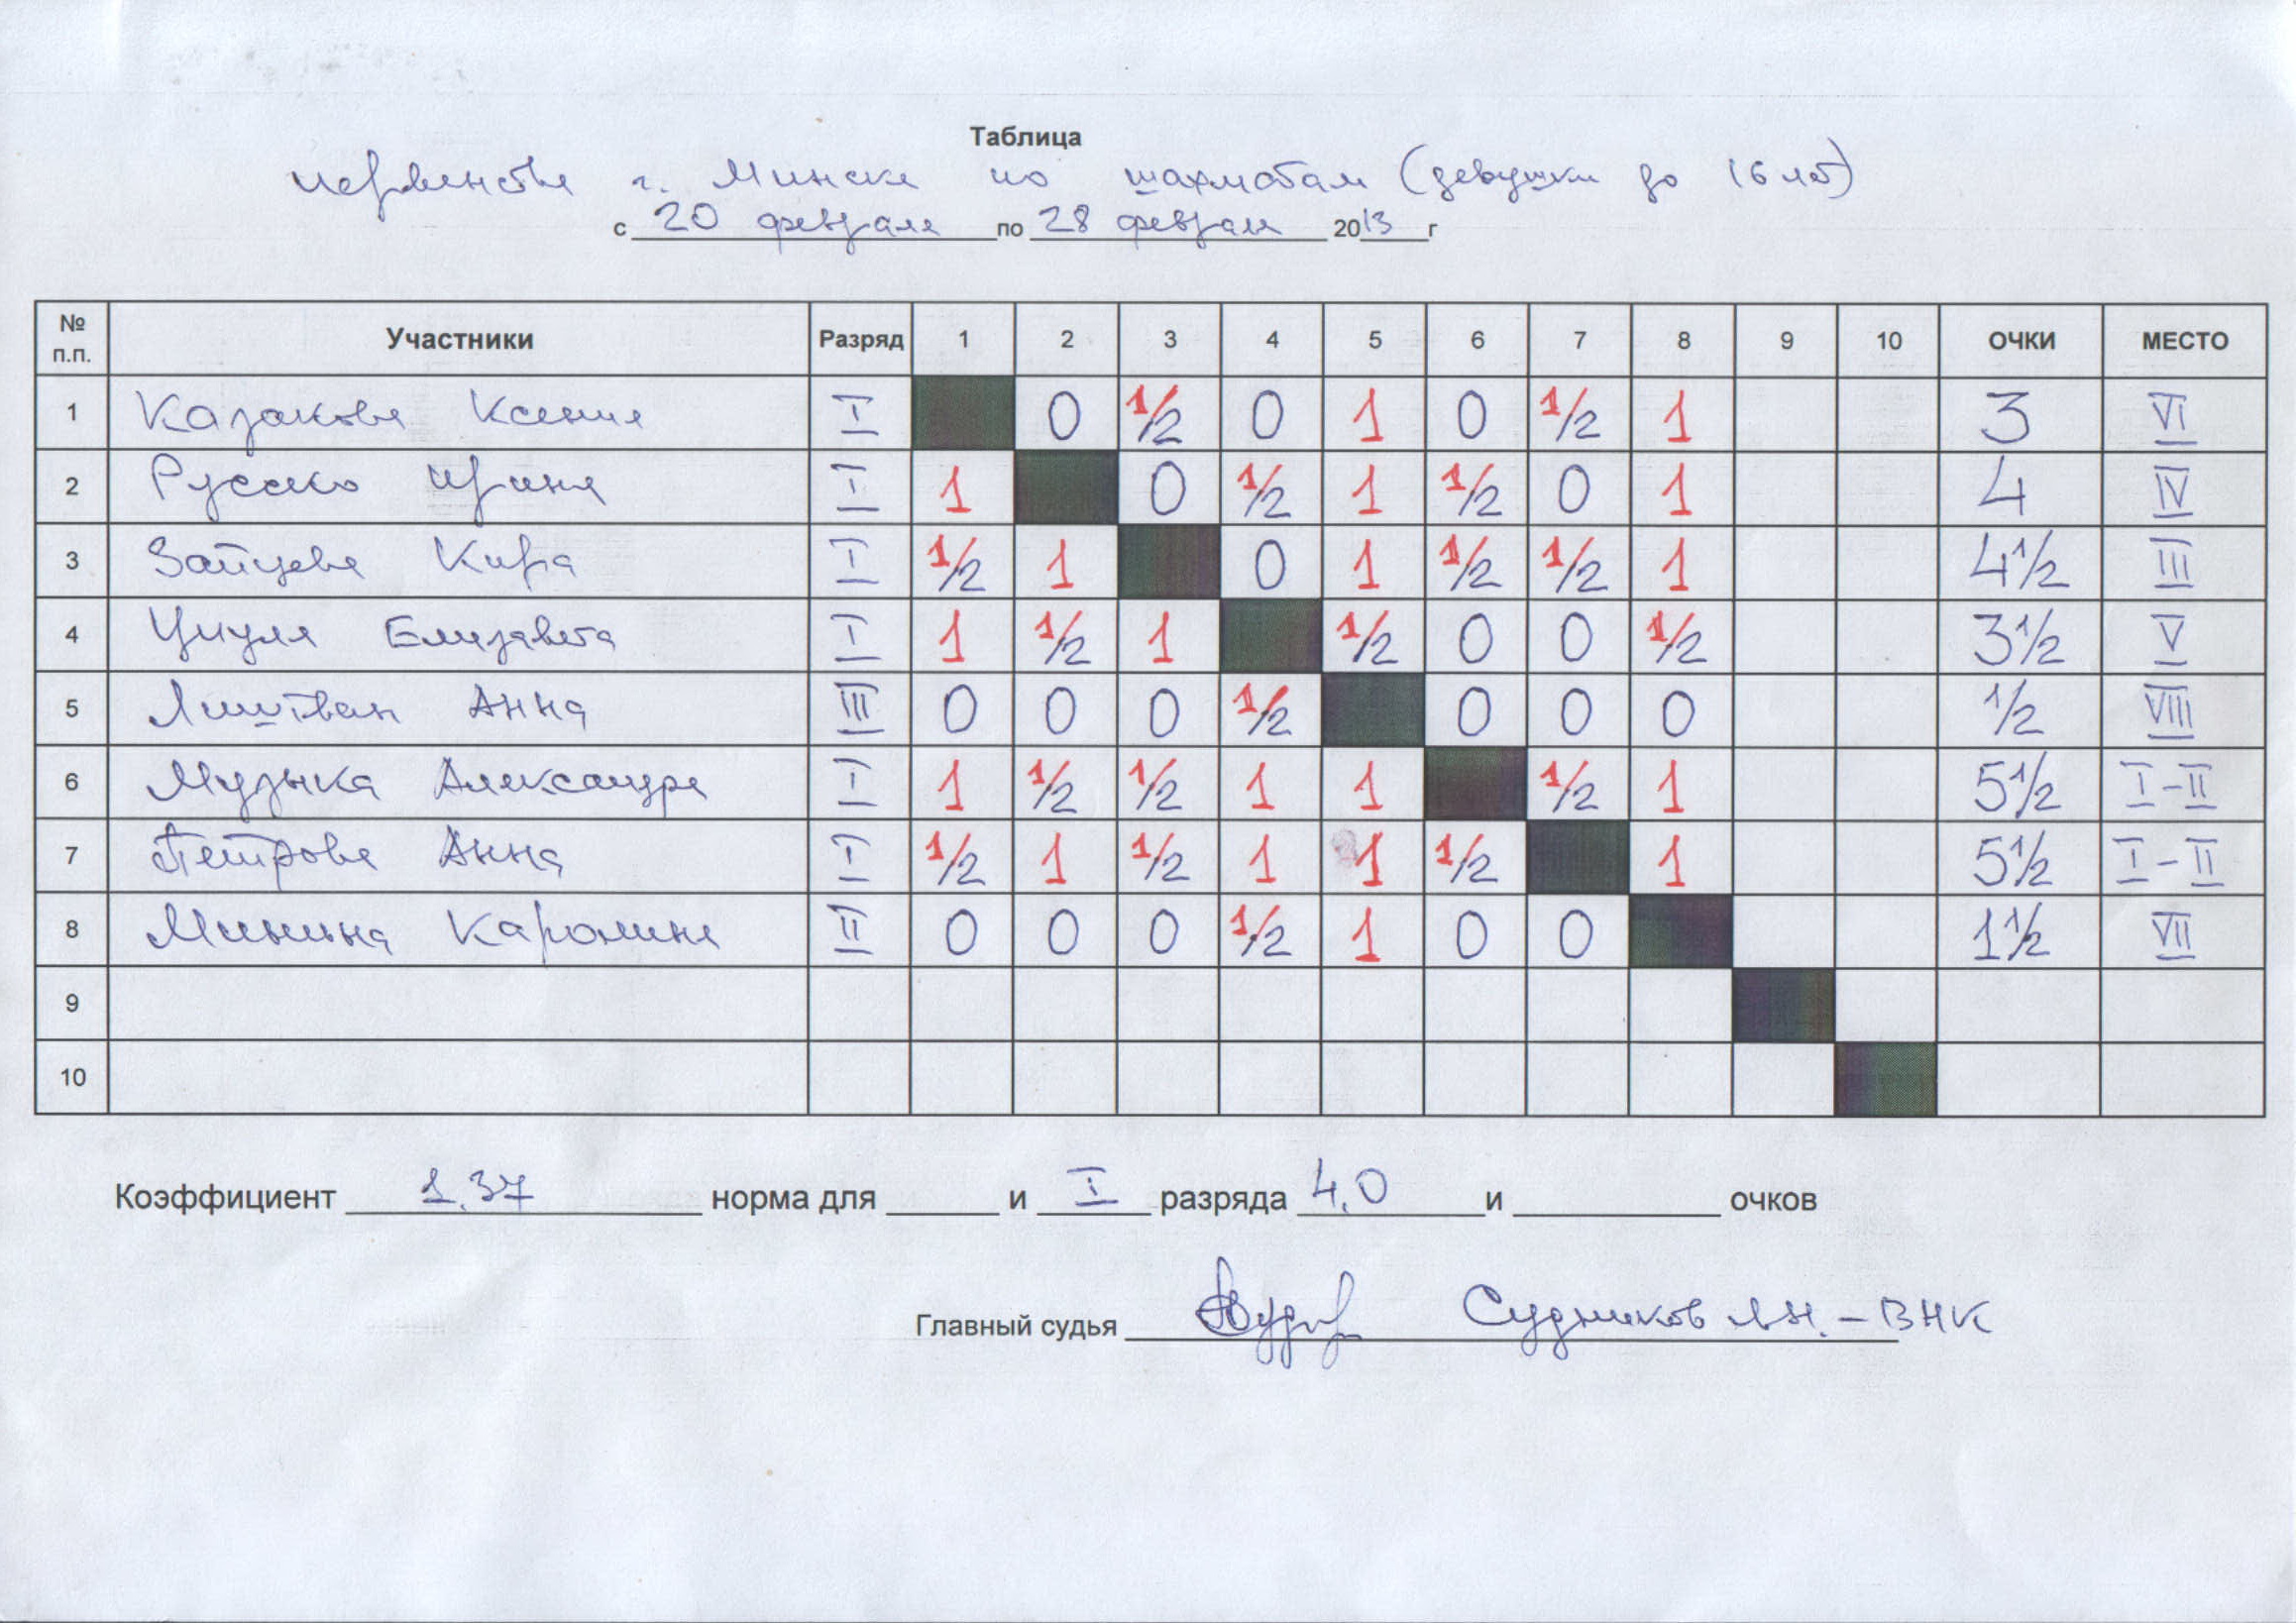 Таблица
первенства г. Минска по шахматам (девушки до 16 лет)
с 20 февраля по 28 февраля 2013 г
№ п.п. Участники Разряд 1 2 3 4 5 6 7 8 9 10 ОЧКИ МЕСТО
1 Казакова Ксения I 0 1/2 0 1 0 1/2 1 3 VI
2 Русско Ирина I 1 0 1/2 1 1/2 0 1 4 IV
3 Зайцева Кира I 1/2 1 0 1 1/2 1/2 1 4 1/2 III
4 Елизавета I 1 1/2 1 1/2 0 0 1/2 3 1/2 V
5 Анна III 0 0 0 1/2 0 0 0 1/2 VIII
6 Музыка Александра I 1 1/2 1/2 1 1 1/2 1 5 1/2 I-II
7 Петрова Анна I 1/2 1 1/2 1 1 1/2 1 5 1/2 I-II
8 Минина Каролина II 0 0 0 1/2 1 0 0 1 1/2 VII
9
10
Коэффициент 1.37 норма для и I разряда 4.0 и очков
Главный судья Судников